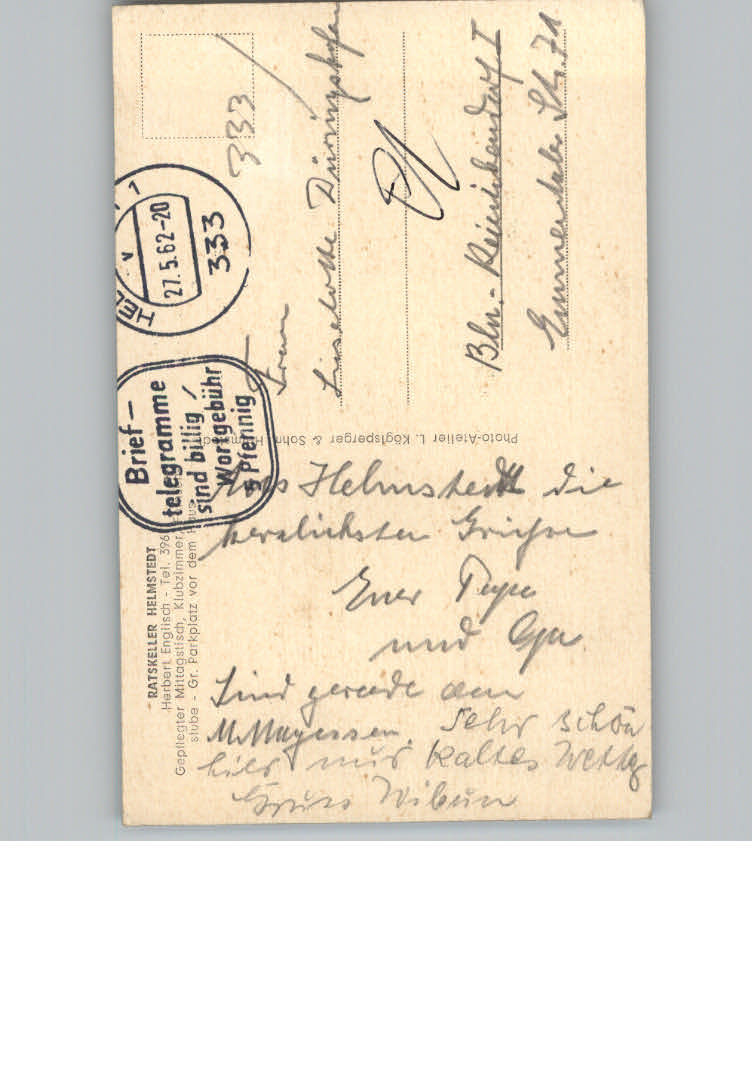 RATSKELLER HELMSTEDT
Herbert Englisch - Tel. 396
Gepflegter Mittagstisch, Klubzimmer,
stube - Gr. Parkplatz vor dem Haus
Brief-
telegramme
sind billig /
Wortgebühr
5 Pfennig
HEL
27.5.62-20
333
333
Photo-Atelier L. Köglsperger & Sohn, Helmstedt
Aus Helmstedt die
herzlichsten Grüße
Euer Papa
und Opa
Sind gerade am
Mittagessen. Sehr schön
hier nur kaltes Wetter
Gruss
Frau
Liselotte Düringshofen
Bln.-Reinickendorf I
Emmentaler Str. 71